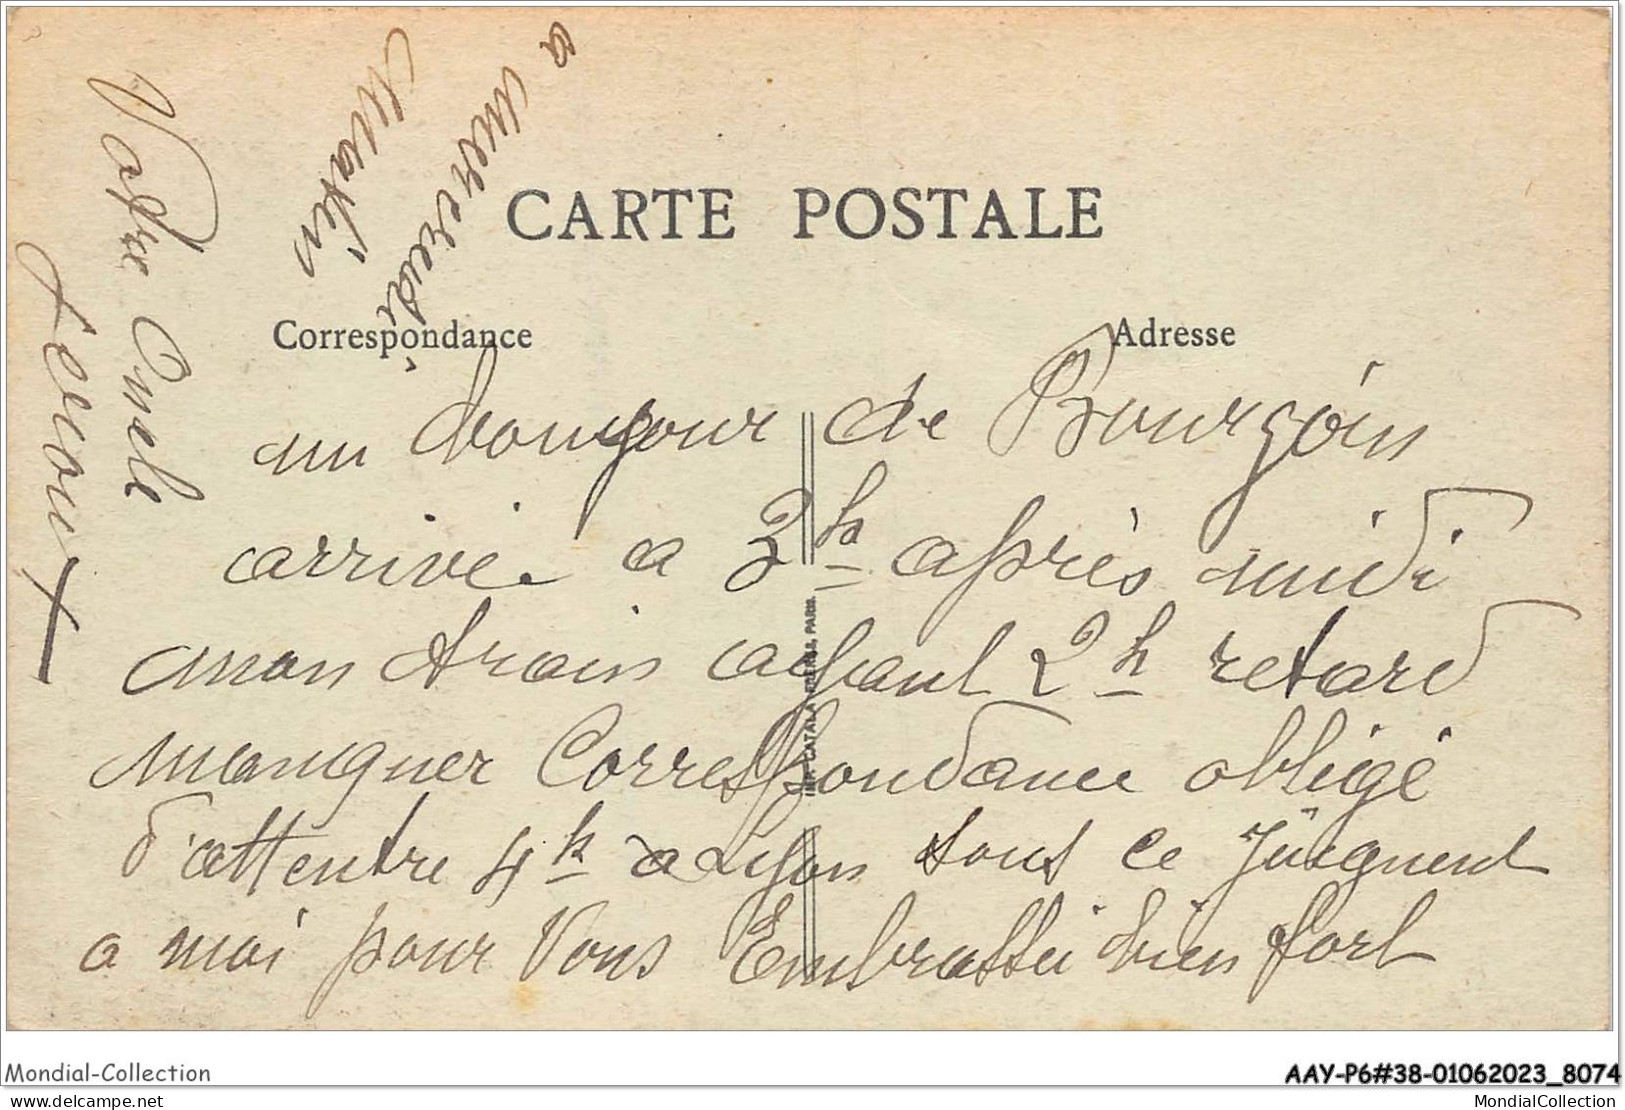 CARTE POSTALE
Correspondance
Adresse
un bonjour de Bourgoin
arrivé a 3h après midi
mon train ayant 2h retard
manquer Correspondance obligé
d'attentre 4h a Lyon tous ce
a moi pour Vous Embrasser bien fort
Votre Oncle
a mercredi
Matin
IMP. CATALA FRÈRES, PARIS.
Mondial-Collection
AAY-P6#38-01062023_8074
delcampe.net
MondialCollection